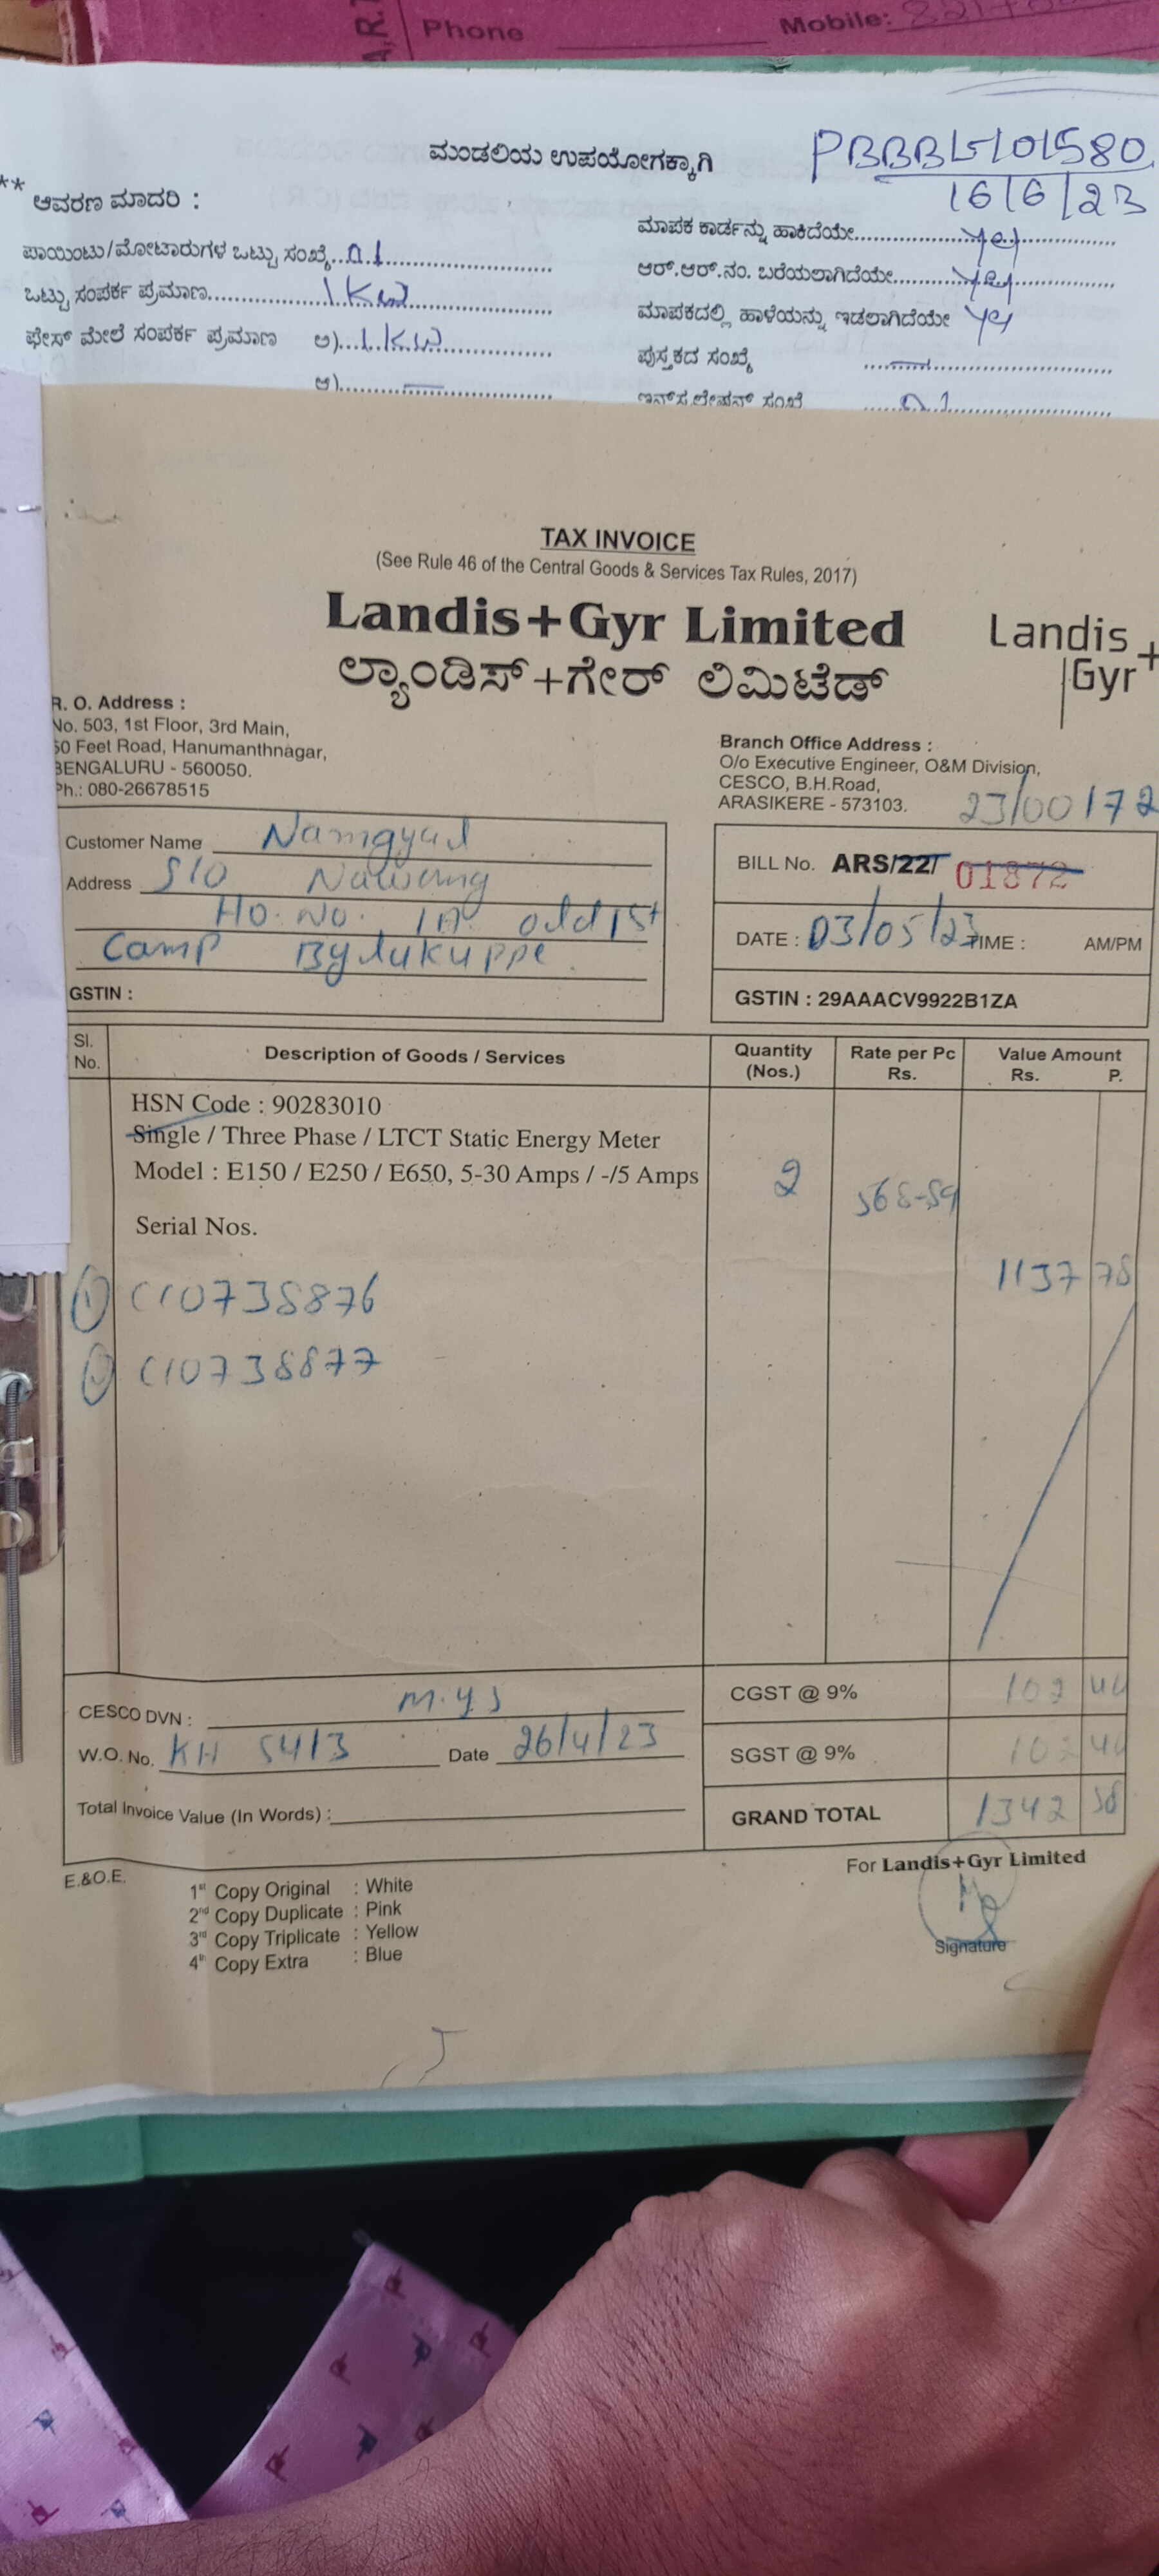 Phone Mobile:
ಮಂಡಲಿಯ ಉಪಯೋಗಕ್ಕಾಗಿ
16/6/23
** ಆವರಣ ಮಾದರಿ :
ಮಾಪಕ ಕಾರ್ಡನ್ನು ಹಾಕಿದೆಯೇ..........yes
ಪಾಯಿಂಟು/ಮೋಟಾರುಗಳ ಒಟ್ಟು ಸಂಖ್ಯೆ..01..........
ಆರ್.ಆರ್.ನಂ. ಬರೆಯಲಾಗಿದೆಯೇ..........yes
ಒಟ್ಟು ಸಂಪರ್ಕ ಪ್ರಮಾಣ..........1 KW..........
ಮಾಪಕದಲ್ಲಿ ಹಾಳೆಯನ್ನು ಇಡಲಾಗಿದೆಯೇ yes
ಫೇಸ್ ಮೇಲೆ ಸಂಪರ್ಕ ಪ್ರಮಾಣ ಅ)...1 KW..........
ಪುಸ್ತಕದ ಸಂಖ್ಯೆ ..........
ಆ)..........
01
TAX INVOICE
(See Rule 46 of the Central Goods & Services Tax Rules, 2017)
Landis+Gyr Limited
Landis+
Gyr
ಲ್ಯಾಂಡಿಸ್+ಗೇರ್ ಲಿಮಿಟೆಡ್
R. O. Address :
No. 503, 1st Floor, 3rd Main,
50 Feet Road, Hanumanthnagar,
BENGALURU - 560050.
Ph.: 080-26678515
Branch Office Address :
O/o Executive Engineer, O&M Division,
CESCO, B.H.Road,
ARASIKERE - 573103.
23/00172
Customer Name Namgyal
Address S/O Nawang
Ho. No. 1A old 1st
Camp Bylukuppe
GSTIN :
BILL No. ARS/22/ 01872
DATE : 03/05/23 TIME : AM/PM
GSTIN : 29AAACV9922B1ZA
Sl. No. Description of Goods / Services Quantity (Nos.) Rate per Pc Rs. Value Amount Rs. P.
HSN Code : 90283010
Single / Three Phase / LTCT Static Energy Meter
Model : E150 / E250 / E650, 5-30 Amps / -/5 Amps 2 568-89
Serial Nos.
1137 78
① C10738876
C10738877
CESCO DVN : M.y.s
CGST @ 9% 102 40
W.O. No. KH 5413 Date 26/4/23
SGST @ 9% 102 40
Total Invoice Value (In Words) :
GRAND TOTAL 1342 58
E.&O.E.
For Landis+Gyr Limited
1st Copy Original : White
2nd Copy Duplicate : Pink
3rd Copy Triplicate : Yellow
4th Copy Extra : Blue
Signature